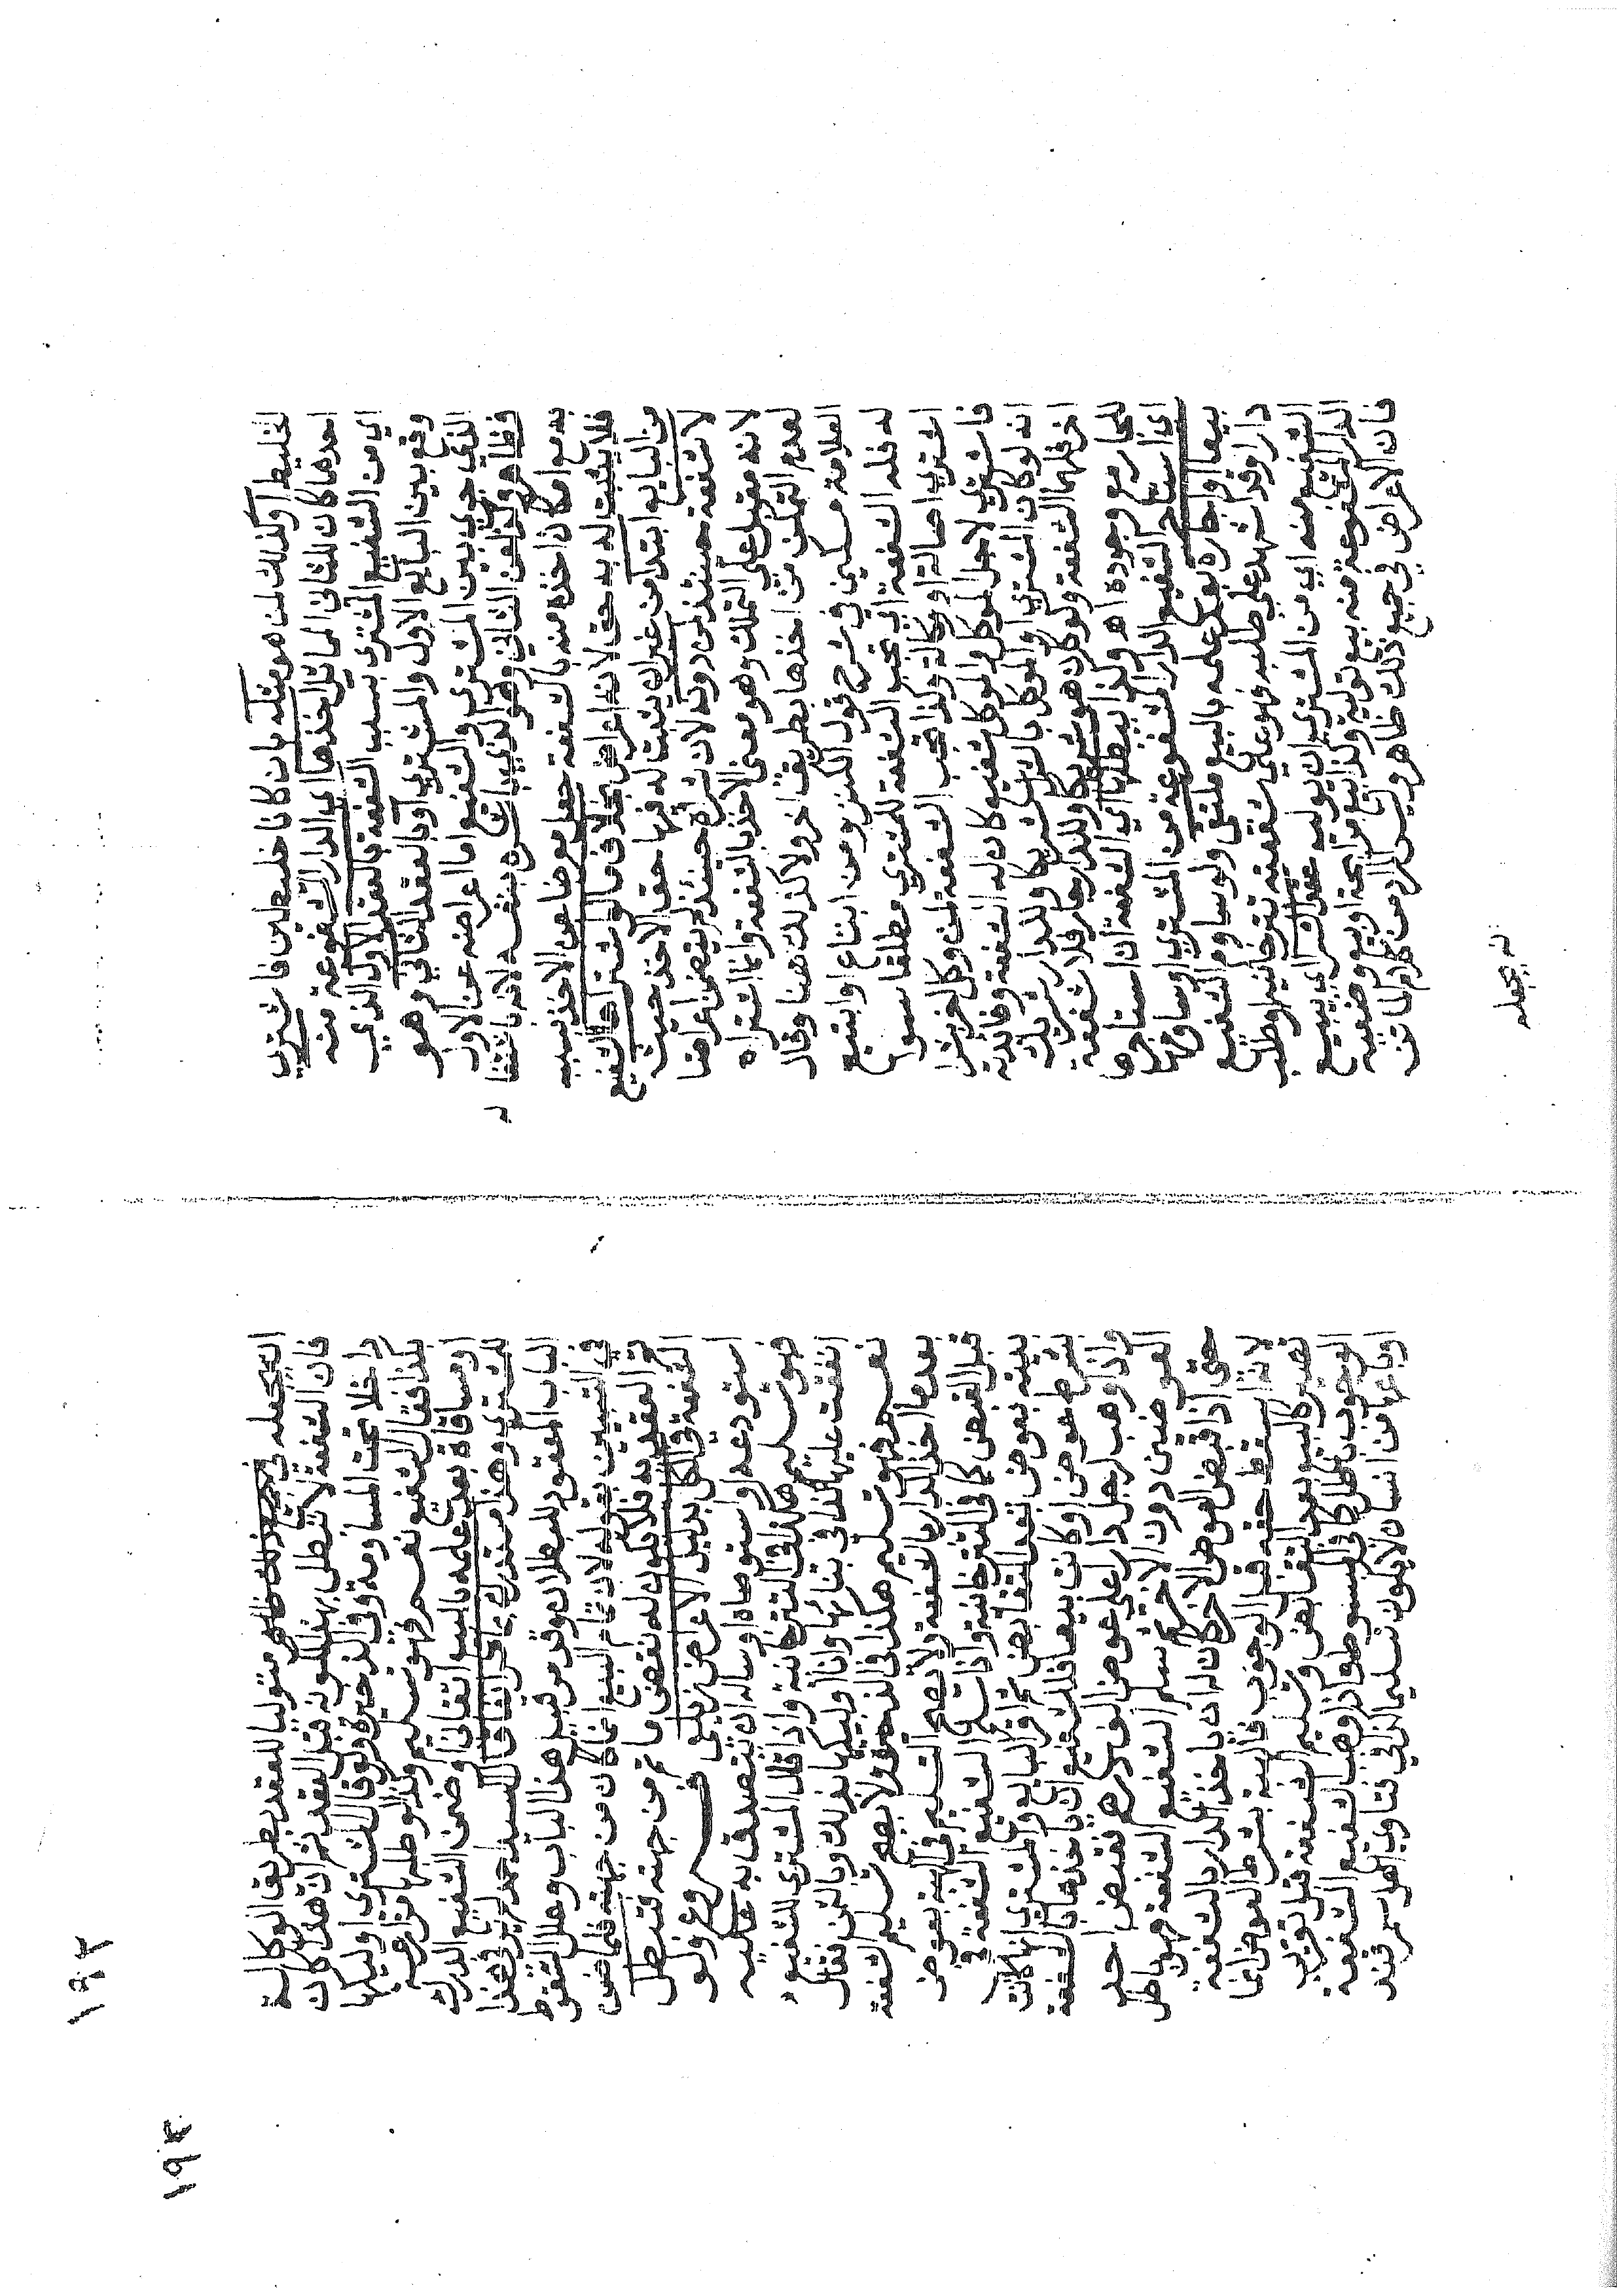 لخليط او كذلك لمن هو مثله بان كانا خليطين فاشترى
احدهما كان للثاني المماثل اخذها اي الدار المشفوعة منه
اي من الشفيع المشتري بسبب الشفعة بالعقد الاول الذي
وقع بين البايع الاول والمشتري او بالعقد الثاني وهو
الذي جرى بين المشتري والشفيع اما اعراضه عن الاول
فظاهر واما عن الثاني وهو الذي باشره بنفسه لانه باشتغا
به مع امكان اخذه منه بالشفعة جعل معرضا عن الاخذ بسببه
فلا يثبت له به حق لانه اعراض بخلاف ما لو اشتراها الشفيع
من البايع ابتدا من غير ان يثبت له فيها حق الاخذ حيث
لا شفعة حينئذ لمن دونه لان شراه حينئذ لم يتضمن اعراضا
لانه مقبل على التملك وهو معنى الاخذ بالشفعة وانما اشتراه
لعدم التمكن من اخذها بطريق اخر ولا كذلك هنا وقال
العلامة مسكين في شرح قول الكنز ومن ابتاع او ابتيع
له فله الشفعة اي تجب الشفعة للمشتري مطلقا سوا
اشترى اصالة او وكالة وكذا تجب الشفعة لمن وكل لغير بشرا
فاشترى لاجل الموكل والموكل شفيع كان له الشفعة وفائدته
انه لو كان المشتري او الموكل بالشرا شريكا وللدار شريك
اخر فلهما الشفعة ولو كان هو شريكا وللدار جار فلا شفعة
للجار مع وجوده اهـ وكذا يبطلها اي الشفعة ان استاجرها
اي استاجر الشفيع الدار المشفوعة من المشتري او ساومها
بيعا او اجارة بعد علمه بالبيع ملتقى ولو ساوم الشفيع
دارا وقد اشهد على طلبه فهو على شفعته تترخانيه او طلب
الشفيع منه اي من المشتري ان يوليه عقد الشرا اي يبيع
الدار المشفوعة منه بيع تولية وكذا بيع مرابحة او بيع وضيعة
فان الاعراض في جميع ذلك ظاهر وليس المراد من كلام الماتن
ان يجعله
١٩٢
ان يجعله في جميع ذلك ظاهر متوليا للعقد بطريق الوكالة
فان الشفعة لا تبطل بهذا لكونه قبل العقد ثم ان هذا كان
داخلا تحت المساومة وفي الذخيرة ولو قال المشتري اوليكها
بكذا فقال الشفيع نعم فهو تسليم وكذا لو طلبها مزارعة
او مساقاة بعد علمه بالبيع اتقاني او ضمن الشفيع الدرك
للمشتري وهذا مستدرك بما مر اتفاقا لسيد احمد لم يمر في هذا
الباب المعقود للبطلان وقد مر قبيل هذا الباب وعلل السقوط
في التبيين بقوله لان تمام البيع انما كان من جهته فلما ضمن
تم العقد به فلا يكون له نقض ما تم من جهته فتبطل
الشفعة في الكل بدليل الاعراض زيلعي فروع ولو
استودعه او استوصاه او ساله ان يتصدق به عليه
فهو تسليم هكذا في التترخانية واذا قال المشتري للشفيع
انفقت عليها كذا في بنائها وانا اوليكها بذلك وبالثمن فقال
نعم فهو تسليم هكذا في الذخيرة ولا يصح تسليم الشفعة
بعد ما اخذ الدار بالشفعة ولا يصح التسليم في الهبة بعوض
قبل القبض كما في التترخانية واذا سلم الشفيع الشفعة في
هبة بعوض بعد التقابض ثم اقر البايع والمشتري انها كانت
بشرط عوض او كانت بيعا فللشفيع ان ياخذها بالشفعة
واذا وهب لرجل دارا على عوض الف درهم فقبض احد
العوضين دون الاخر ثم سلم الشفيع الشفعة فهو باطل
حتى اذا قبض العوض الاخر كان له ان ياخذ الدار بالشفعة
لانه اسقط حقه قبل الوجوب فالهبة بشرط العوض انما
تصير كالبيع بعد التقابض وتسليم الشفعة قبل تقرر
الوجوب باطل كما في المبسوط واذا وهب الشفيع الشفعة
او باعها من انسان لا يكون تسليما كذا في فتاوى اهل سمرقند
١٩٣